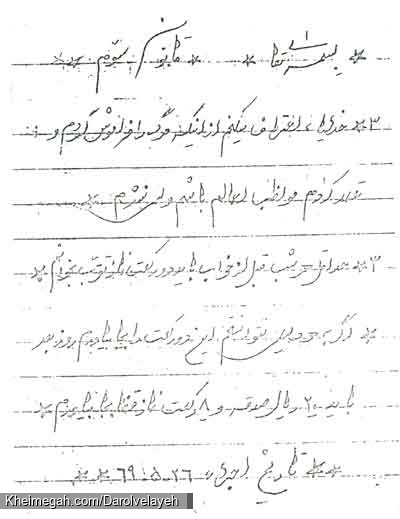 * بسمه تعالی * * قانون سوم *
۳* خدایا، اعتراف میکنم از اینکه مرگ را فراموش کردم و
تعهد کردم مواظب اعمالم باشم ولی نشدم *
۳* حداقل هر شب قبل از خواب باید دو رکعت نماز توبه بخوانم *
* اگر به هر دلیلی نتوانستم این دو رکعت را بجا بیاورم روز بعد
باید ۲۰ ریال صدقه و ۸ رکعت نماز قضا بجا بیاورم *
** تاریخ اجراء ۶۹.۵.۲۶ **
Kheimegah.com/Darolvelayeh